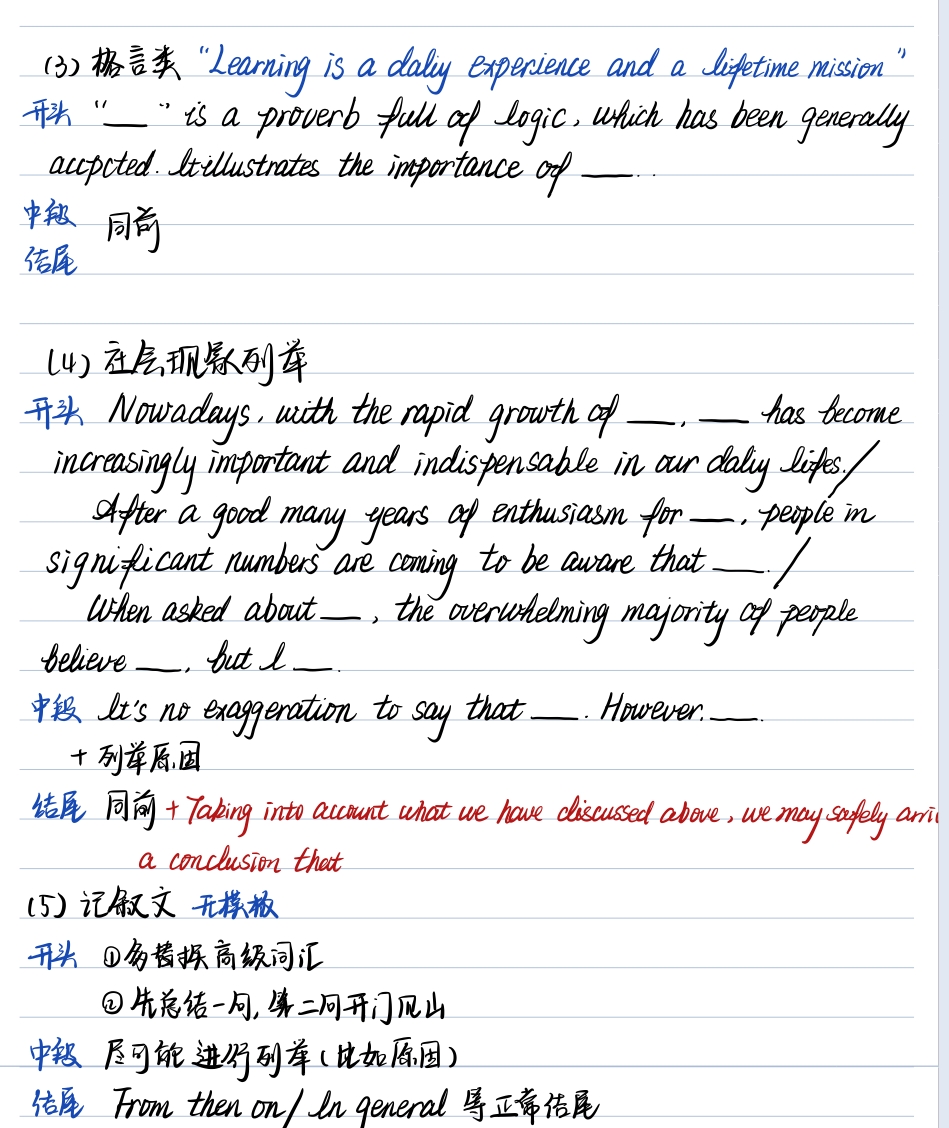 (3) 格言类 "Learning is a daliy experience and a lifetime mission"
开头 "__" is a proverb full of logic, which has been generally
accpcted. It illustrates the importance of __..
中段 同前
结尾
(4) 社会现象列举
开头 Nowadays, with the rapid growth of __, __ has become
increasingly important and indispensable in our daliy lifes./
After a good many years of enthusiasm for __, people in
significant numbers are coming to be aware that __./
When asked about __, the overwhelming majority of people
believe __, but I __.
中段 It's no exaggeration to say that __. However, __.
+ 列举原因
结尾 同前 + Taking into account what we have discussed above, we may safely arri
a conclusion that
(5) 记叙文 无模板
开头 ①多替换高级词汇
②先总结一句, 第二句开门见山
中段 尽可能进行列举(比如原因)
结尾 From then on/ In general 等正常结尾